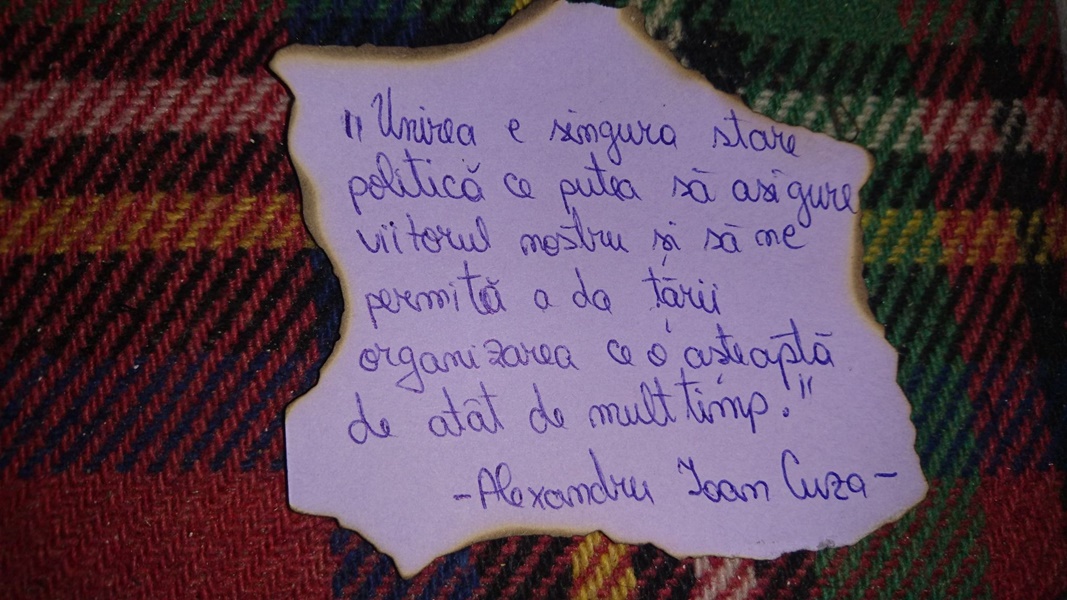 "Unirea e singura stare
politică ce putea să asigure
viitorul nostru și să ne
permită a da țării
organizarea ce o așteaptă
de atât de mult timp."
-Alexandru Ioan Cuza-